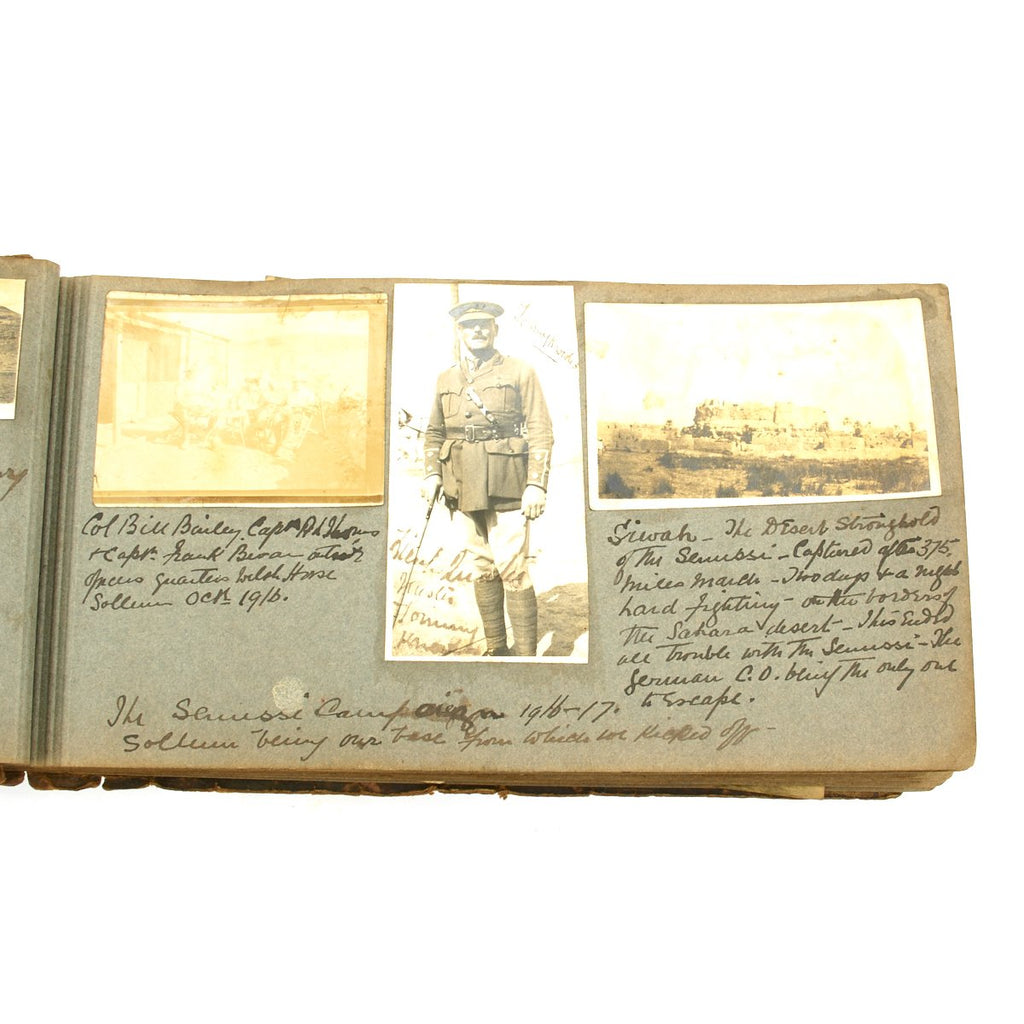 Col Bill Bailey, Capt
+ Capt. Frank Bevan
Officers quarters Welch Horse
Sollum Oct. 1916.
Tommy
Siwah – The Desert Stronghold
of the Senussi – Captured after 375
miles march – Two days + a night
hard fighting – on the borders of
the Sahara desert – This Ended
all trouble with the Senussi – The
German C.O. being the only one
to Escape.
The Senussi Campaign 1916–17.
Sollum being our base from which we kicked off –